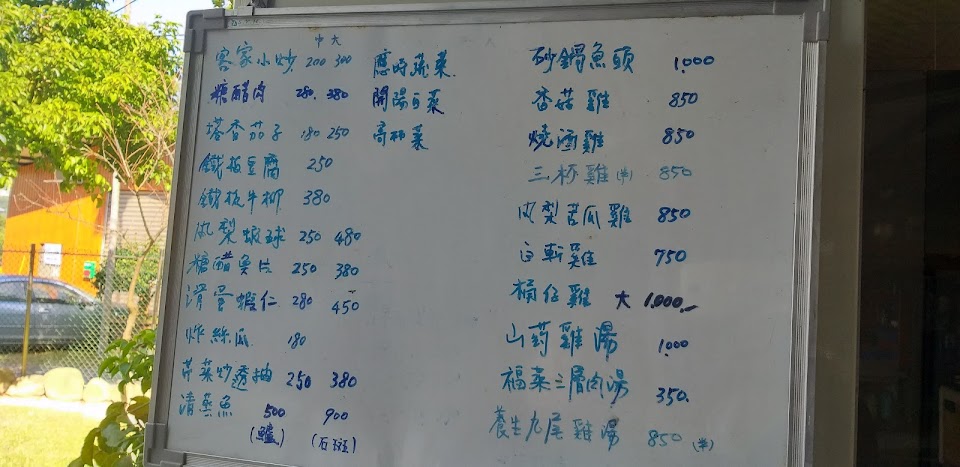 中 大
客家小炒 200 300
糖醋肉 280. 380
塔香茄子 180 250
鐵板豆腐 250
鐵板牛柳 380
鳳梨蝦球 250 480
糖醋魚片 250 380
滑蛋蝦仁 280 450
炸絲瓜 180
芹菜炒透抽 250 380
清蒸魚 500 900
(鱸) (石斑)
應時蔬菜.
開陽白菜
高麗菜
砂鍋魚頭 1,000
香菇雞 850
燒酒雞 850
三杯雞(半) 850
鳳梨苦瓜雞 850
白斬雞 750
桶仔雞 大 1,000
山药雞湯 1,000
福菜三層肉湯 350.
養生九尾雞湯 850 (半)